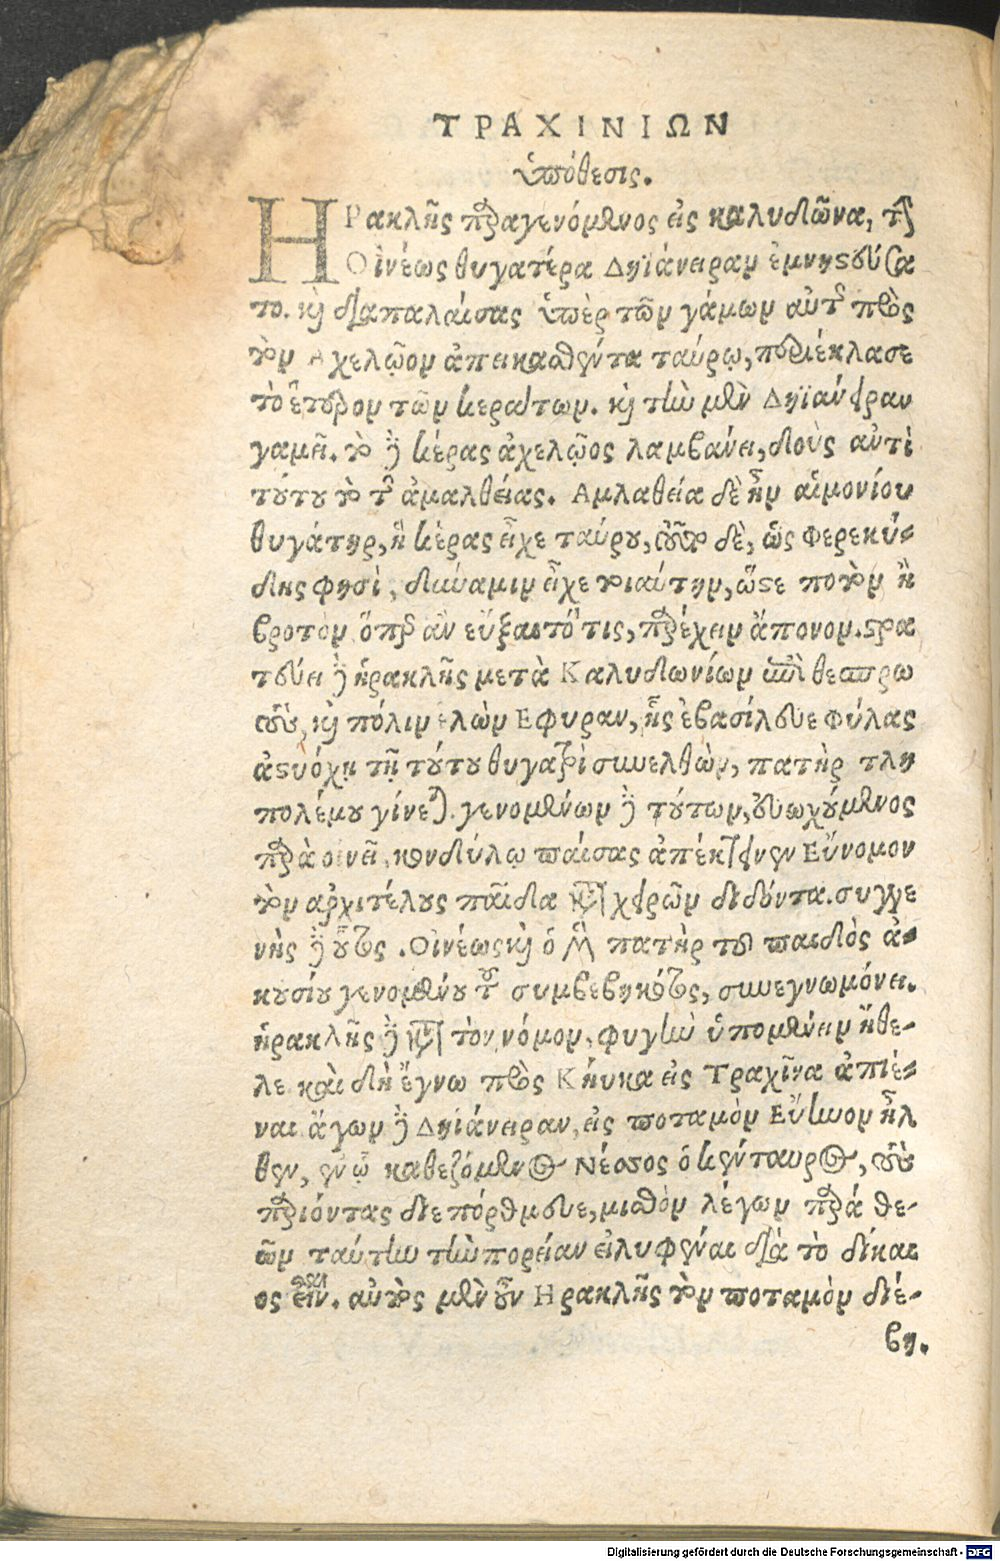 ΤΡΑΧΙΝΙΩΝ
ὑπόθεσις.
ΗΡακλῆς παραγενόμενος εἰς καλυδῶνα, τὴν
Οἰνέως θυγατέρα Δηϊάνειραν ἐμνηστεύσα
το. καὶ διαπαλαίσας ὑπὲρ τῶν γάμων αὐτῆς πρὸς
τὸν Αχελῷον ἀπεικασθέντα ταύρῳ, περιέκλασε
τὸ ἕτερον τῶν κεράτων. καὶ τὴν μὲν Δηϊάνειραν
γαμεῖ. τὸ δὲ κέρας ἀχελῷος λαμβάνει, δοὺς αὐτὶ
τούτου τὸ τῆς ἀμαλθείας. Αμλαθεία δὲ ἦν αἱμονίου
θυγάτηρ, ἣ κέρας εἶχε ταύρου, τοῦτο δὲ, ὡς Φερεκύ-
δης φησὶ, δύναμιν εἶχε τοιαύτην, ὥστε ποτὸν ἢ
βροτὸν ὅπερ ἂν εὔξαιτό τις, παρέχειν ἄπονον. στρα
τεύει δὲ ἡρακλῆς μετὰ Καλυδωνίων ἐπὶ θεσπρω
τοὺς, καὶ πόλιν ἑλὼν Εφυραν, ἧς ἐβασίλευε Φύλας
ἀστυόχῃ τῇ τούτου θυγατρὶ συνελθὼν, πατὴρ τλη
πολέμου γίνεται. γενομένων δὲ τούτων, εὐωχούμενος
παρὰ οἰνεῖ, κονδύλῳ παίσας ἀπέκτεινεν Εὔνομον
τὸν ἀρχιτέλους παῖδα κατὰ χειρῶν διδόντα. συγγε
νὴς δὲ οὗτος. Οἰνέως καὶ ὁ μὲν πατὴρ τοῦ παιδὸς ἀ-
κουσίου γενομένου τοῦ συμβεβηκότος, συνεγνωμόνει.
ἡρακλῆς δὲ κατὰ τὸν νόμον, φυγὴν ὑπομένειν ἤθε-
λε καὶ δὴ ἔγνω πρὸς Κήυκα εἰς Τραχῖνα ἀπιέ-
ναι ἄγων δὲ Δηϊάνειραν, εἰς ποταμὸν Εὔηνον ἦλ
θεν, ἐν ᾧ καθεζόμενος Νέσσος ὁ κένταυρος, τοὺς
παριόντας διεπόρθμευε, μισθὸν λέγων παρά θε-
ῶν ταύτην τὴν πορείαν εἰλυφέναι διὰ τὸ δίκαι
ος εἶναι. αὐτὸς μὲν οὖν Ηρακλῆς τὸν ποταμὸν διέ-
βη.
Digitalisierung gefördert durch die Deutsche Forschungsgemeinschaft - DFG